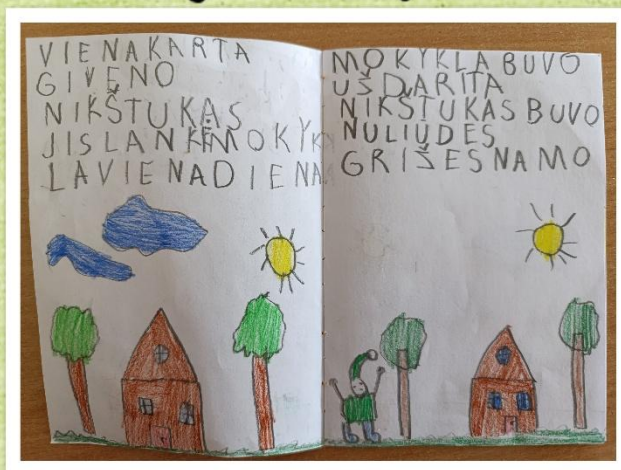 VIENAKARTA
GIVENO
NIKŠTUKAS
JISLANKĖMOKYK
LAVIENADIENA
MOKYKLA BUVO
UŠDARITA
NIKŠTUKAS BUVO
NULIUDES
GRIŠESNAMO